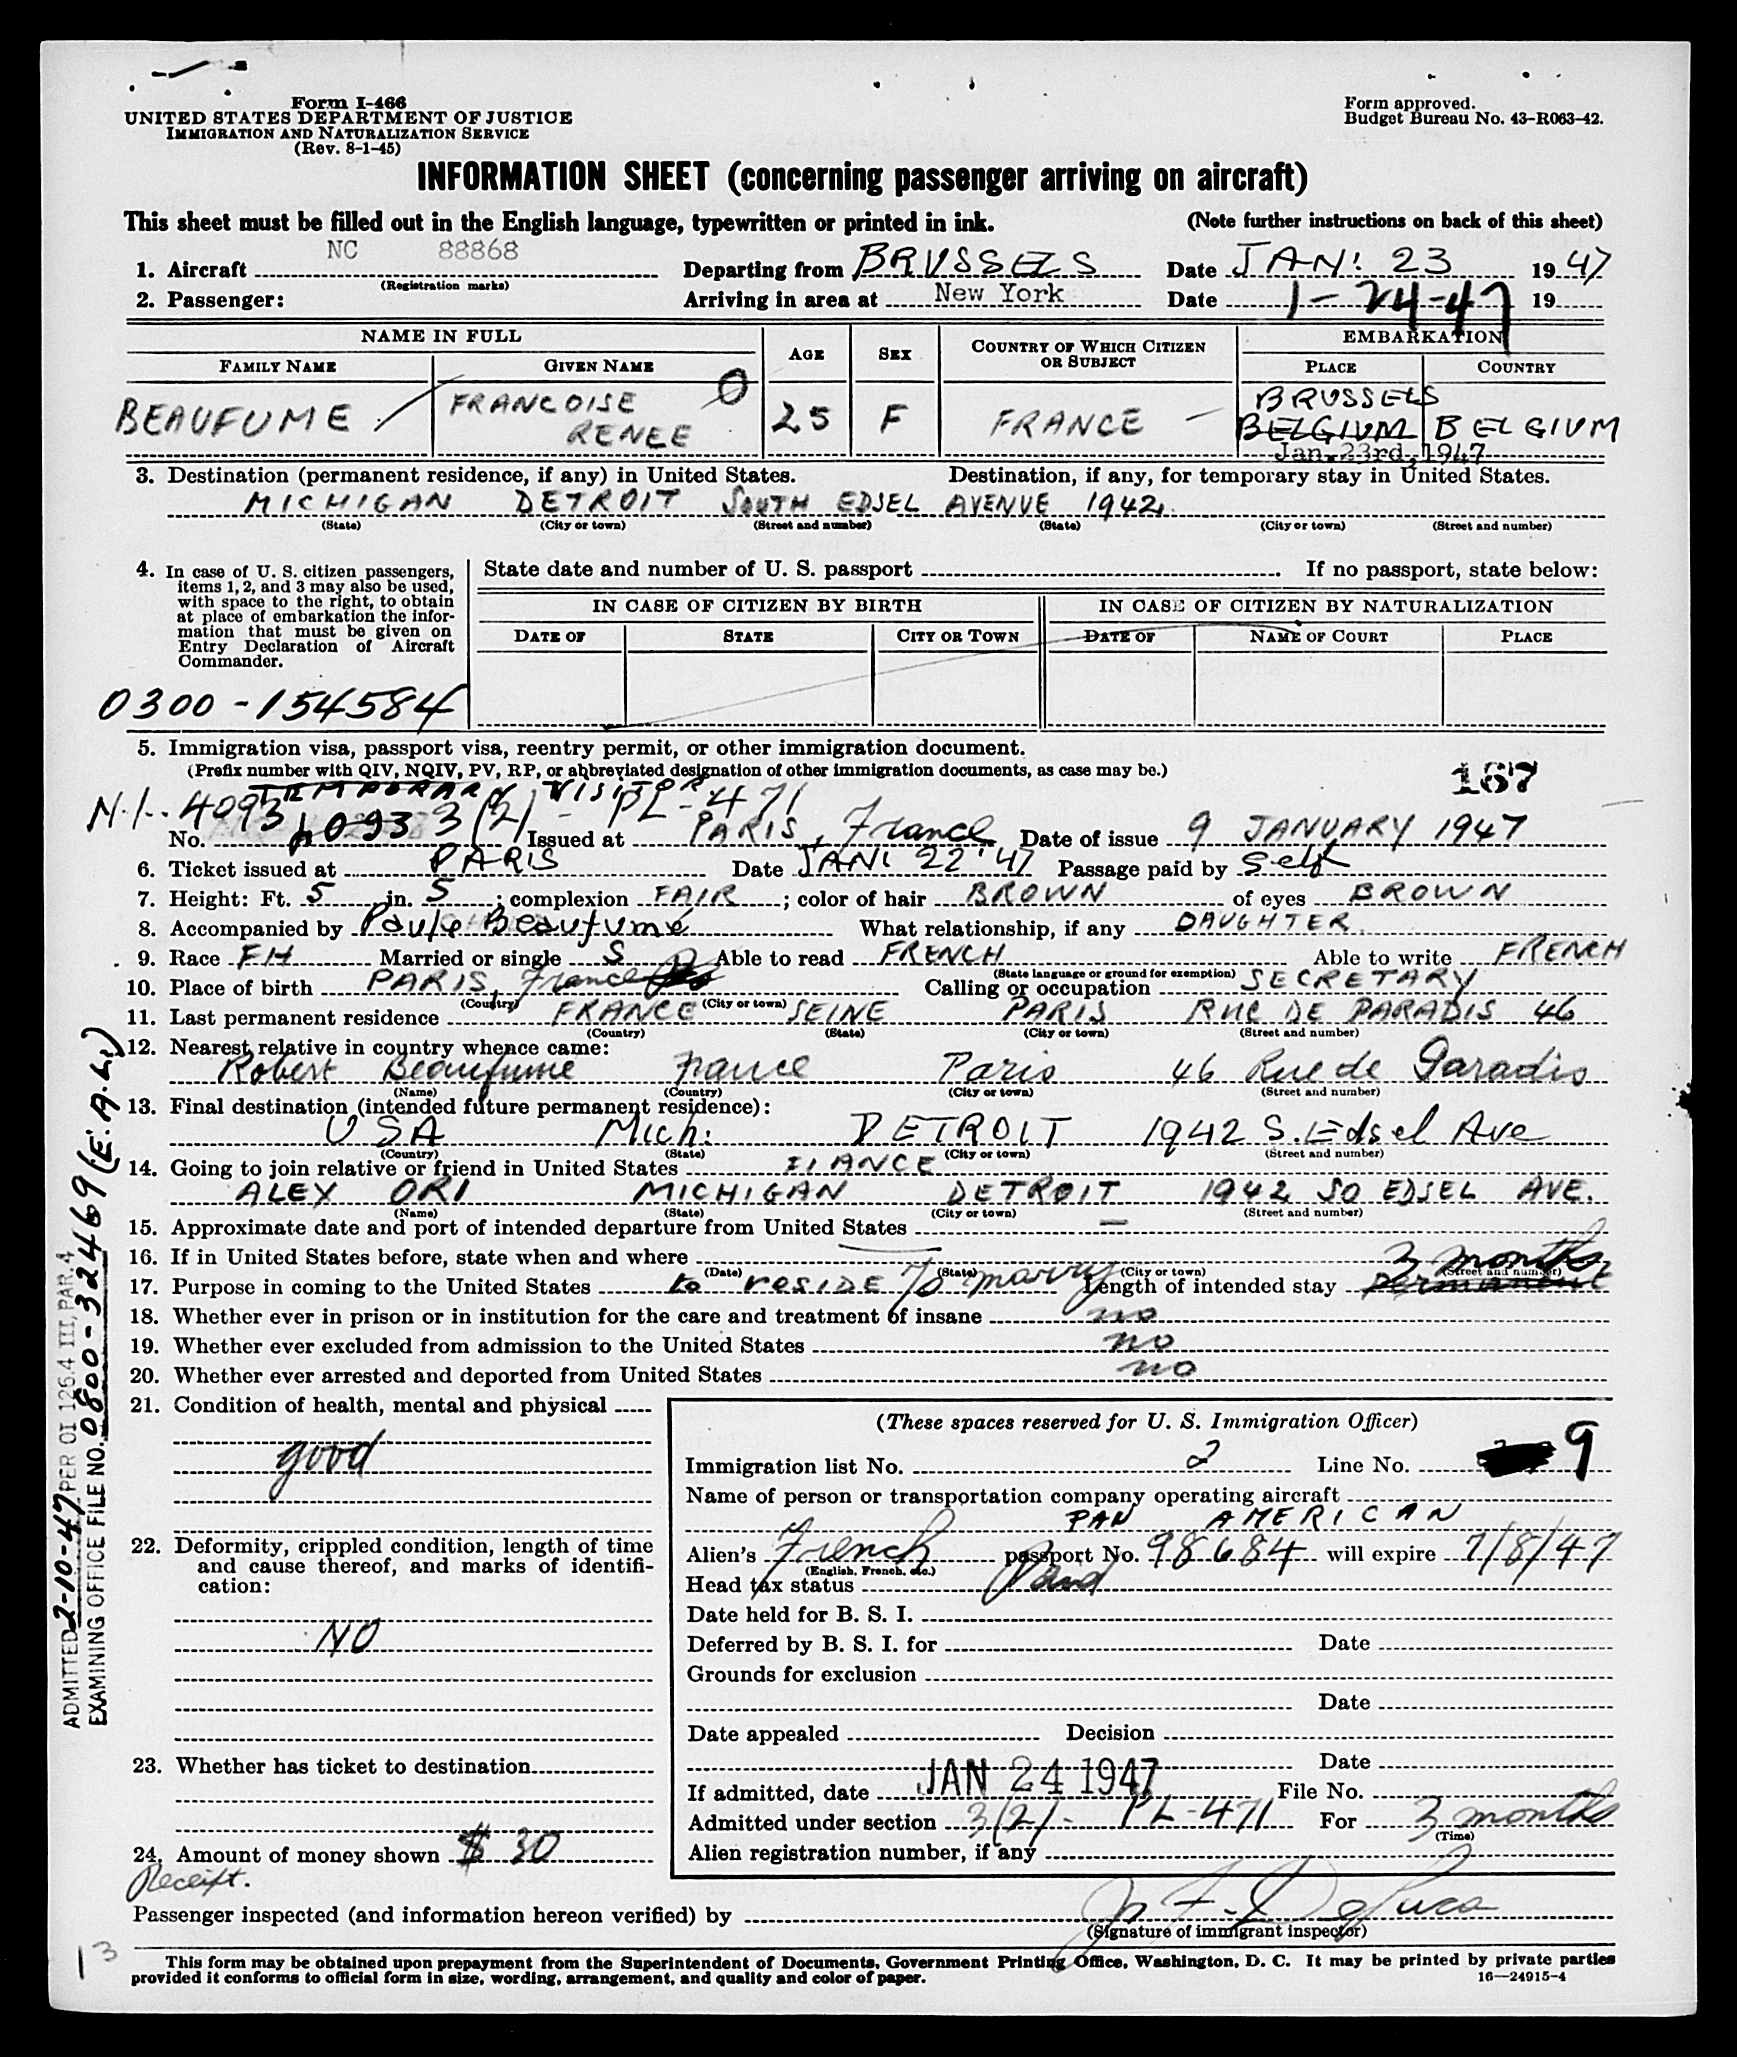 Form I-466
UNITED STATES DEPARTMENT OF JUSTICE
IMMIGRATION AND NATURALIZATION SERVICE
(Rev. 8-1-45)
Form approved.
Budget Bureau No. 43-R063-42.
INFORMATION SHEET (concerning passenger arriving on aircraft)
This sheet must be filled out in the English language, typewritten or printed in ink. (Note further instructions on back of this sheet)
1. Aircraft NC 88868 Departing from BRUSSELS Date JAN. 23 1947
(Registration marks)
2. Passenger: Arriving in area at New York Date 1-24-47 19
NAME IN FULL AGE SEX COUNTRY OF WHICH CITIZEN OR SUBJECT EMBARKATION
FAMILY NAME GIVEN NAME PLACE COUNTRY
BEAUFUME FRANCOISE RENEE 0 25 F FRANCE BRUSSELS BELGIUM BELGIUM
Jan. 23rd, 1947
3. Destination (permanent residence, if any) in United States. Destination, if any, for temporary stay in United States.
MICHIGAN DETROIT SOUTH EDSEL AVENUE 1942
(State) (City or town) (Street and number) (State) (City or town) (Street and number)
4. In case of U. S. citizen passengers, items 1, 2, and 3 may also be used, with space to the right, to obtain at place of embarkation the information that must be given on Entry Declaration of Aircraft Commander.
State date and number of U. S. passport If no passport, state below:
IN CASE OF CITIZEN BY BIRTH IN CASE OF CITIZEN BY NATURALIZATION
DATE OF STATE CITY OR TOWN DATE OF NAME OF COURT PLACE
0300-154584
5. Immigration visa, passport visa, reentry permit, or other immigration document.
(Prefix number with QIV, NQIV, PV, RP, or abbreviated designation of other immigration documents, as case may be.)
167
TEMPORARY VISITOR
N.I. 4093 3(2) - PL-471
No. 4093 Issued at PARIS, France Date of issue 9 JANUARY 1947
6. Ticket issued at PARIS Date JAN. 22 '47 Passage paid by Self
7. Height: Ft. 5 in. 5; complexion FAIR; color of hair BROWN of eyes BROWN
8. Accompanied by Paule Beaufumé What relationship, if any DAUGHTER
9. Race FH Married or single S Able to read FRENCH Able to write FRENCH
(State language or ground for exemption)
10. Place of birth PARIS, France Calling or occupation SECRETARY
(Country) (City or town)
11. Last permanent residence FRANCE SEINE PARIS RUE DE PARADIS 46
(Country) (State) (City or town) (Street and number)
12. Nearest relative in country whence came:
Robert Beaufume France Paris 46 Rue de Paradis
(Name) (Country) (City or town) (Street and number)
13. Final destination (intended future permanent residence):
USA Mich. DETROIT 1942 S. Edsel Ave
(Country) (State) (City or town) (Street and number)
14. Going to join relative or friend in United States FIANCE
ALEX ORI MICHIGAN DETROIT 1942 SO EDSEL AVE.
(Name) (State) (City or town) (Street and number)
15. Approximate date and port of intended departure from United States —
16. If in United States before, state when and where
(Date) (State) (City or town) (Street and number)
3 months
17. Purpose in coming to the United States to RESIDE To marry Length of intended stay permanent
18. Whether ever in prison or in institution for the care and treatment of insane no
19. Whether ever excluded from admission to the United States no
20. Whether ever arrested and deported from United States no
21. Condition of health, mental and physical
good
22. Deformity, crippled condition, length of time and cause thereof, and marks of identification:
NO
23. Whether has ticket to destination
24. Amount of money shown $ 30
Receipt.
(These spaces reserved for U. S. Immigration Officer)
Immigration list No. 2 Line No. 9
Name of person or transportation company operating aircraft
PAN AMERICAN
Alien's French passport No. 98684 will expire 7/8/47
(English, French, etc.)
Head tax status Paid
Date held for B. S. I.
Deferred by B. S. I. for Date
Grounds for exclusion
Date
Date appealed Decision
Date
If admitted, date JAN 24 1947 File No.
Admitted under section 3(2) - PL-471 For 3 months
(Time)
Alien registration number, if any
Passenger inspected (and information hereon verified) by
(Signature of immigrant inspector)
13
This form may be obtained upon prepayment from the Superintendent of Documents, Government Printing Office, Washington, D. C. It may be printed by private parties
provided it conforms to official form in size, wording, arrangement, and quality and color of paper.
16—24915-4
ADMITTED 2-10-47 PER OI 126.4 III, PAR. 4
EXAMINING OFFICE FILE NO. 0800-32469 (E.A.L.)